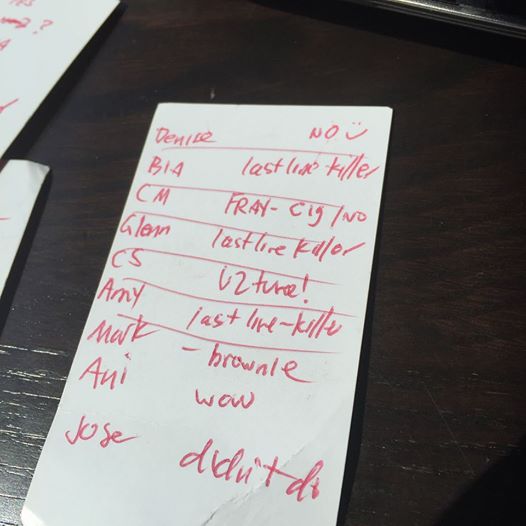 ?
Denise NO
BIA last line killer
CM FRAY- cig/NO
Glenn last line killer
CS U2 tune!
Amy last line-killer
Mark - brownie
Ani wow
Jose didn't do